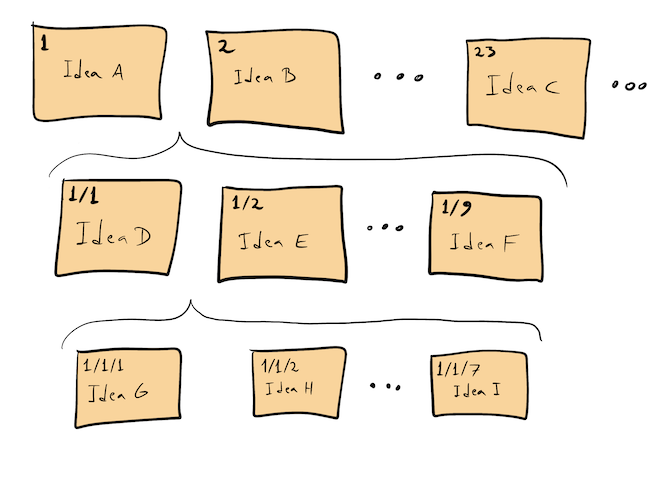 1
Idea A
2
Idea B
...
23
Idea C
...
1/1
Idea D
1/2
Idea E
...
1/9
Idea F
1/1/1
Idea G
1/1/2
Idea H
...
1/1/7
Idea I